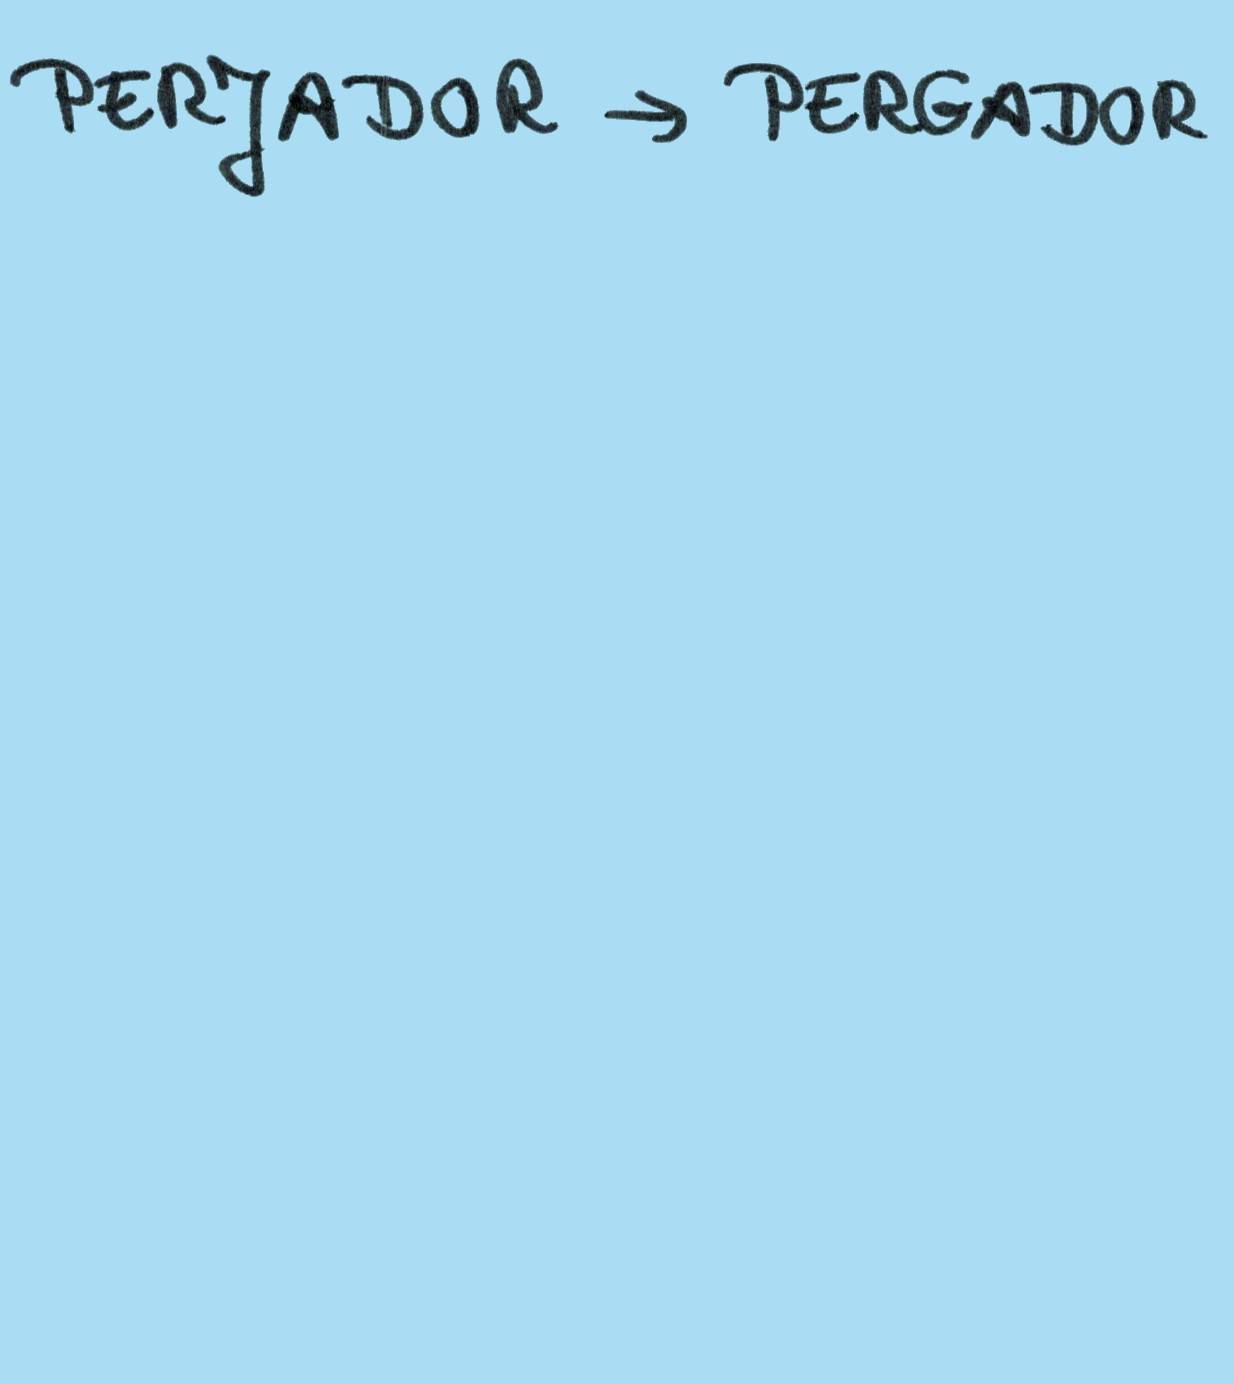 PERJADOR → PERGADOR